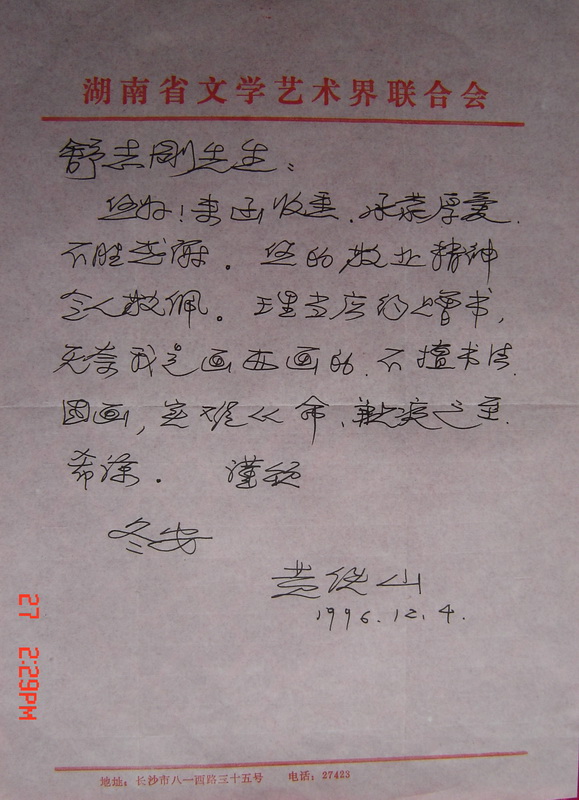 湖南省文学艺术界联合会
舒志刚先生：
您好！来函收悉、承蒙厚爱、
不胜感谢。您的敬业精神
令人敬佩。理当应约赠书，
无奈我是画西画的、不擅书法
国画，实难从命、歉疚之至、
希谅。 谨祝
冬安
黄铁山
1996.12.4.
27 2:29PM
地址：长沙市八一西路三十五号 电话：27423